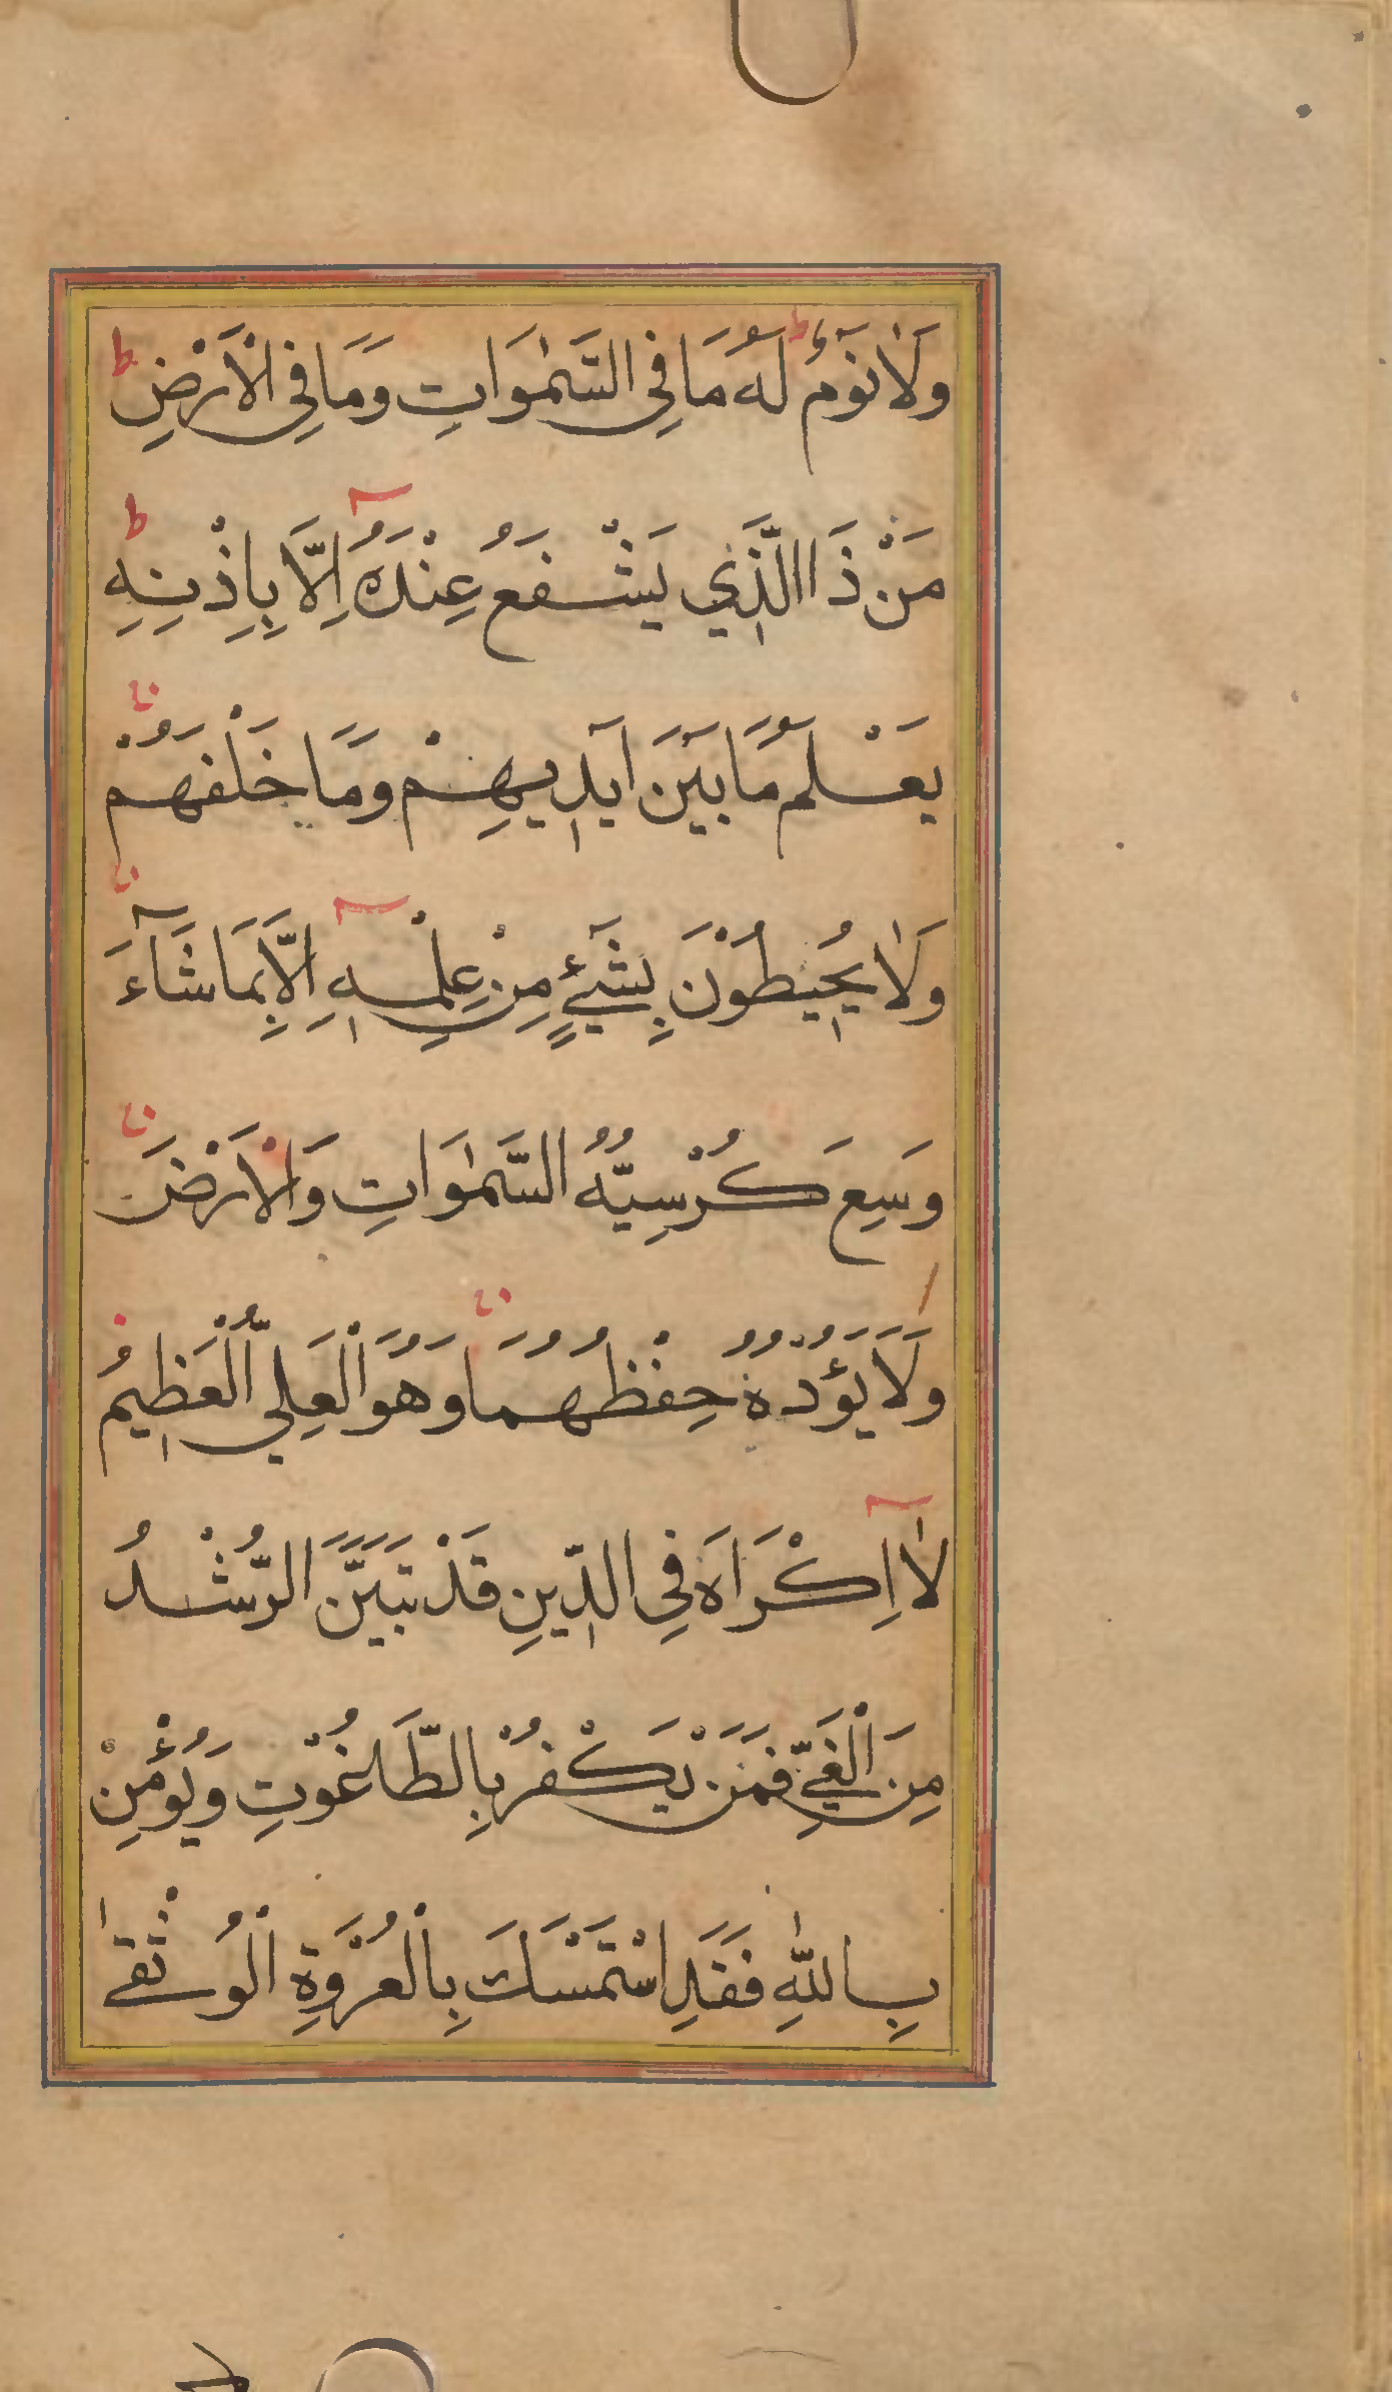 وَلَا نَوْمٌ لَهُ مَا فِي السَّمٰوَاتِ وَمَا فِي الْاَرْضِ ط
مَنْ ذَا الَّذِي يَشْفَعُ عِنْدَهُ اِلَّا بِاِذْنِهِ ط
يَعْلَمُ مَا بَيْنَ اَيْدِيهِمْ وَمَا خَلْفَهُمْ
وَلَا يُحِيطُوْنَ بِشَيْءٍ مِنْ عِلْمِهِ اِلَّا بِمَا شَآءَ
وَسِعَ كُرْسِيُّهُ السَّمٰوَاتِ وَالْاَرْضَ
وَلَا يَؤُدُهُ حِفْظُهُمَا وَهُوَ الْعَلِيُّ الْعَظِيمُ
لَا اِكْرَاهَ فِي الدِّينِ قَدْ تَبَيَّنَ الرُّشْدُ
مِنَ الْغَيِّ فَمَنْ يَكْفُرْ بِالطَّاغُوْتِ وَيُؤْمِنْ
بِاللّٰهِ فَقَدِ اسْتَمْسَكَ بِالْعُرْوَةِ الْوُثْقٰى